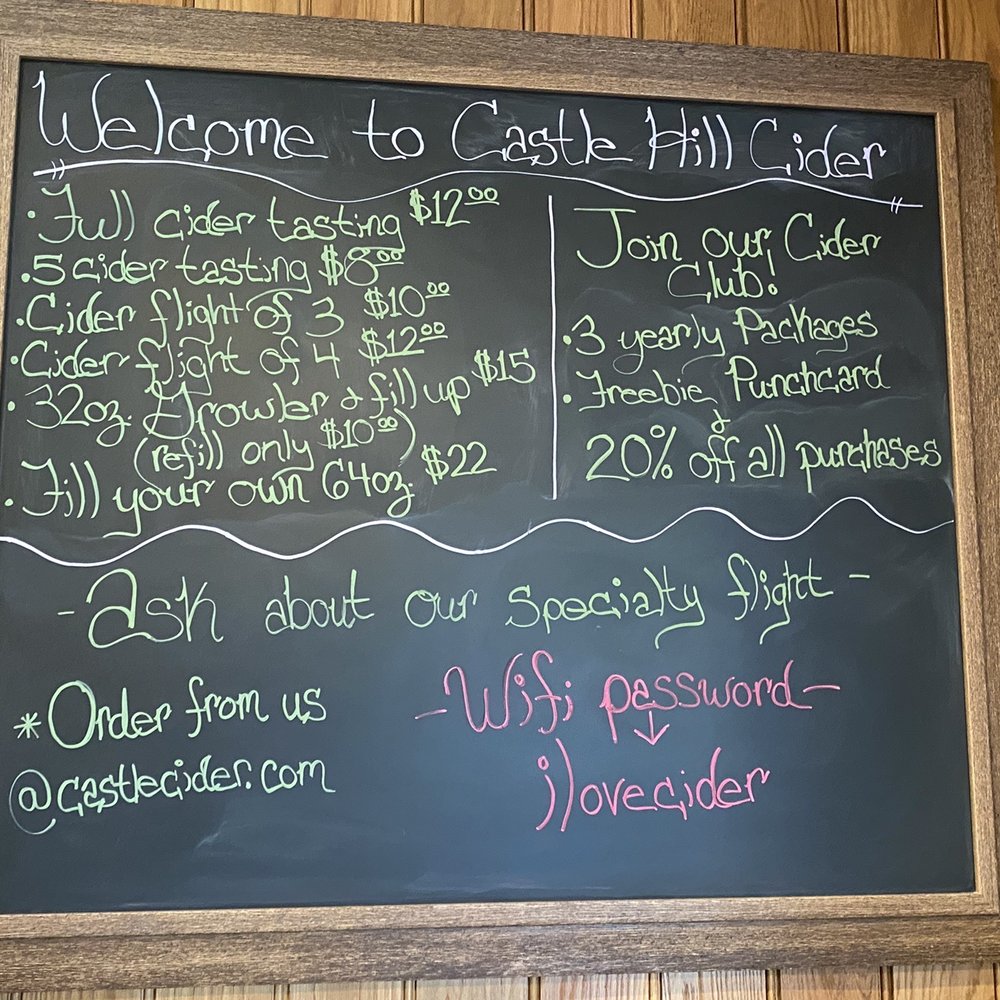 Welcome to Castle Hill Cider
• Full cider tasting $12.00
• 5 cider tasting $8.00
• Cider flight of 3 $10.00
• Cider flight of 4 $12.00
• 32oz. Growler & fill up $15
(refill only $10.00)
• Fill your own 64oz. $22
Join our Cider
Club!
• 3 yearly Packages
• Freebie Punchcard
&
20% off all purchases
- Ask about our specialty flight -
* Order from us
@castlecider.com
- Wifi password -
↓
ilovecider